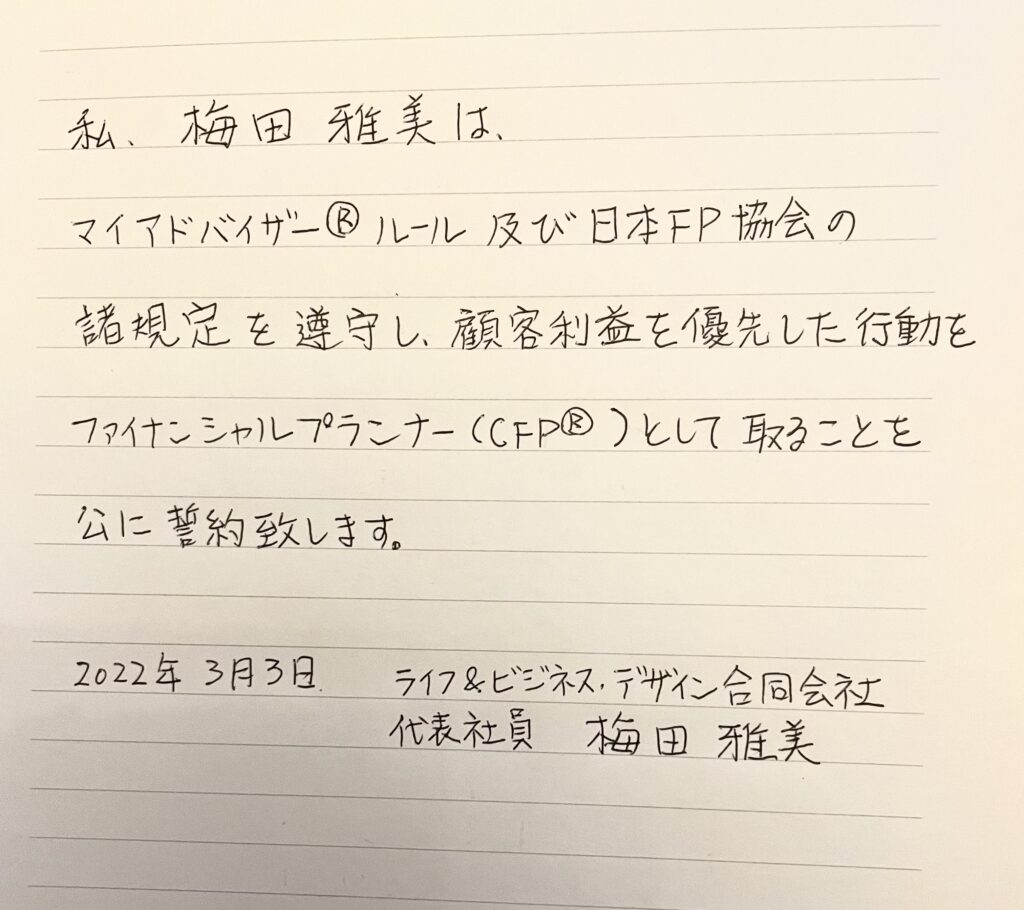 私、梅田 雅美は、
マイアドバイザー®ルール 及び日本FP協会の
諸規定を遵守し、顧客利益を優先した行動を
ファイナンシャルプランナー(CFP®)として取ることを
公に誓約致します。
2022年3月3日 ライフ&ビジネス・デザイン合同会社
代表社員 梅田 雅美